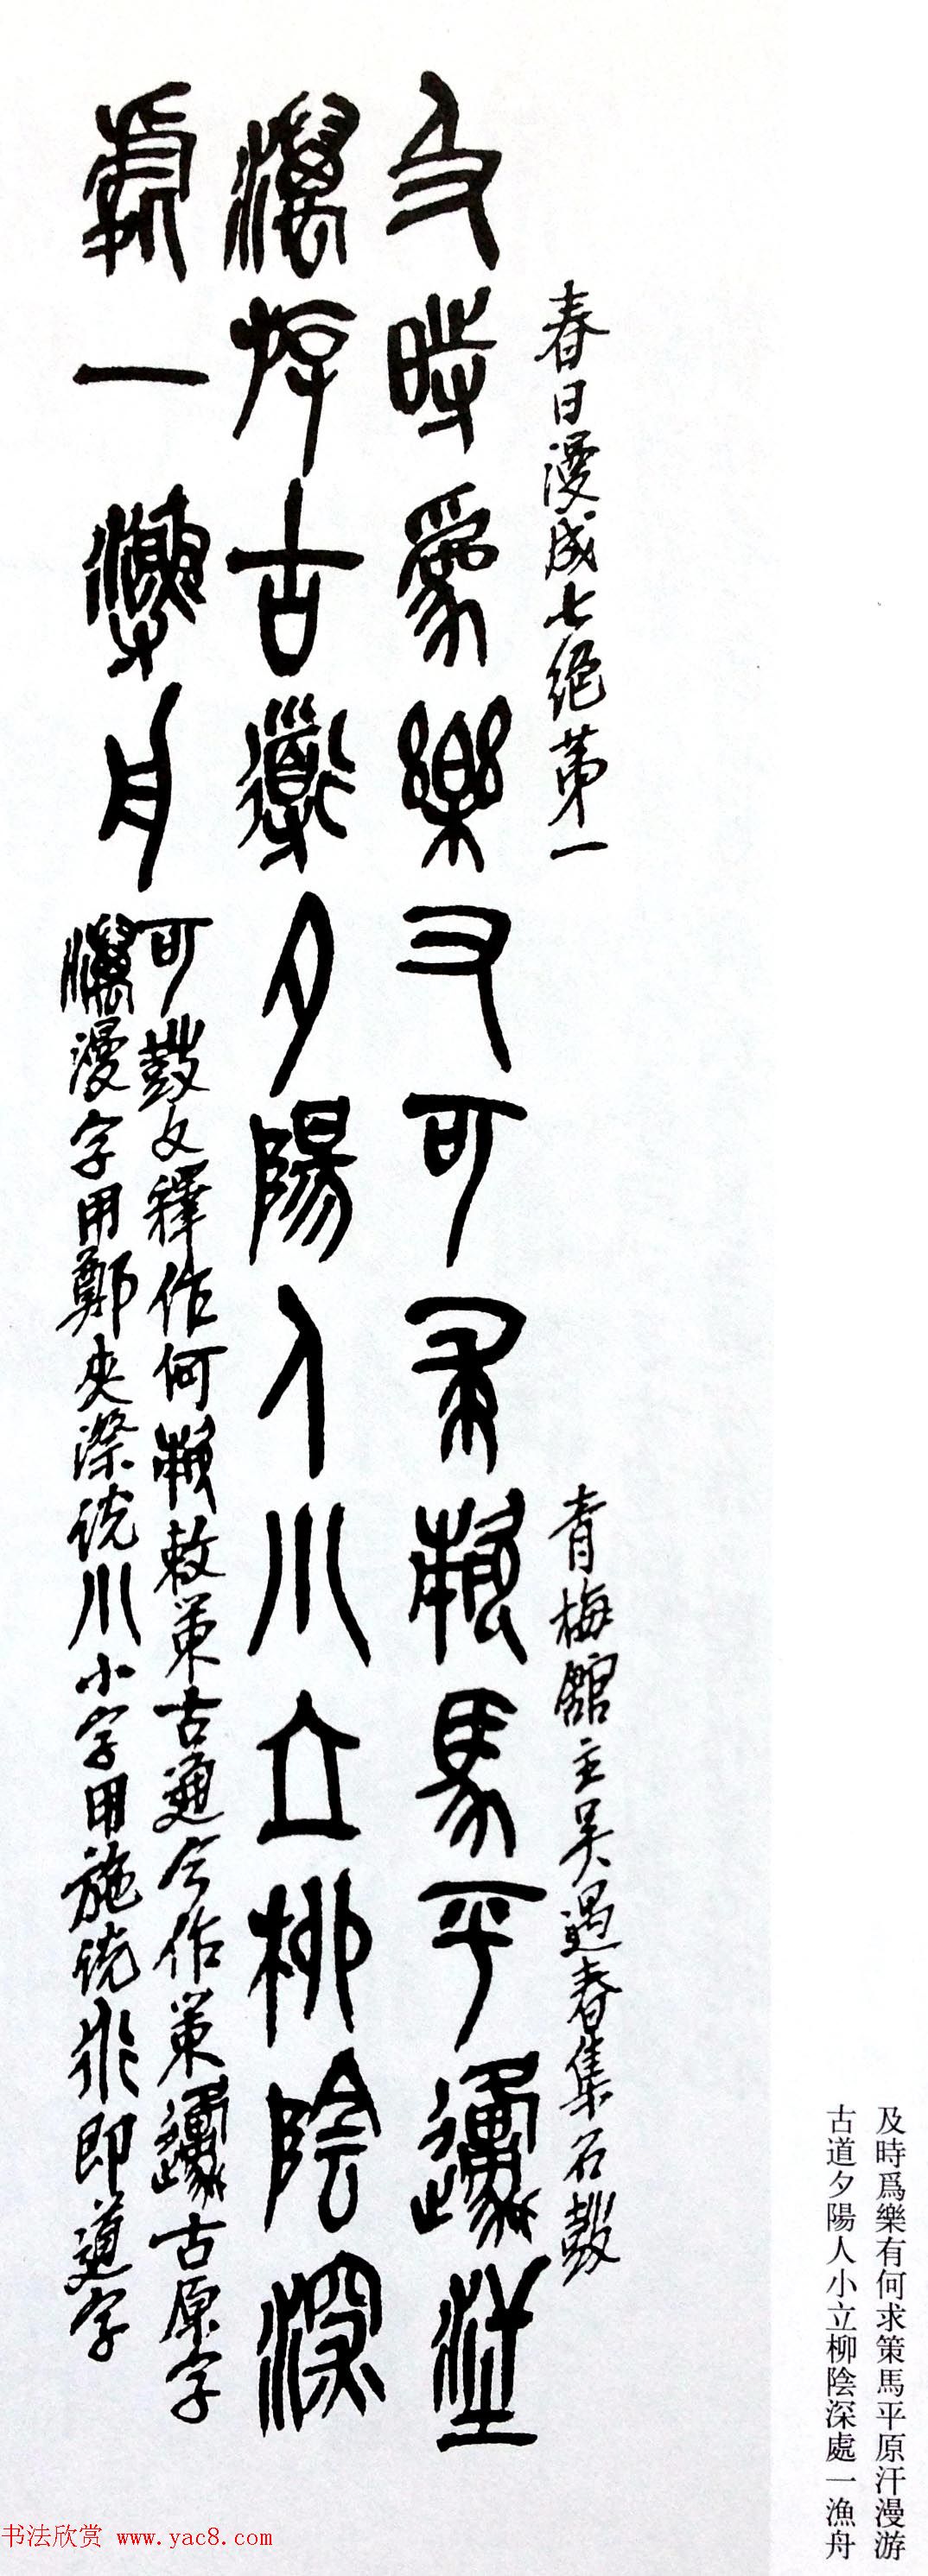 及時爲樂有何求策馬平原汗漫游
古道夕陽人小立柳陰深處一漁舟
春日漫成七絕第一
青梅館主吳遇春集石鼓
及時爲樂又可求敕馬平邍汗
漫游古道夕陽人小立柳陰深
處一漁舟
可鼓文釋作何敕策古通今作策邍古原字
漫字用鄭夾漈說小字用施說即道字
书法欣赏 www.yac8.com